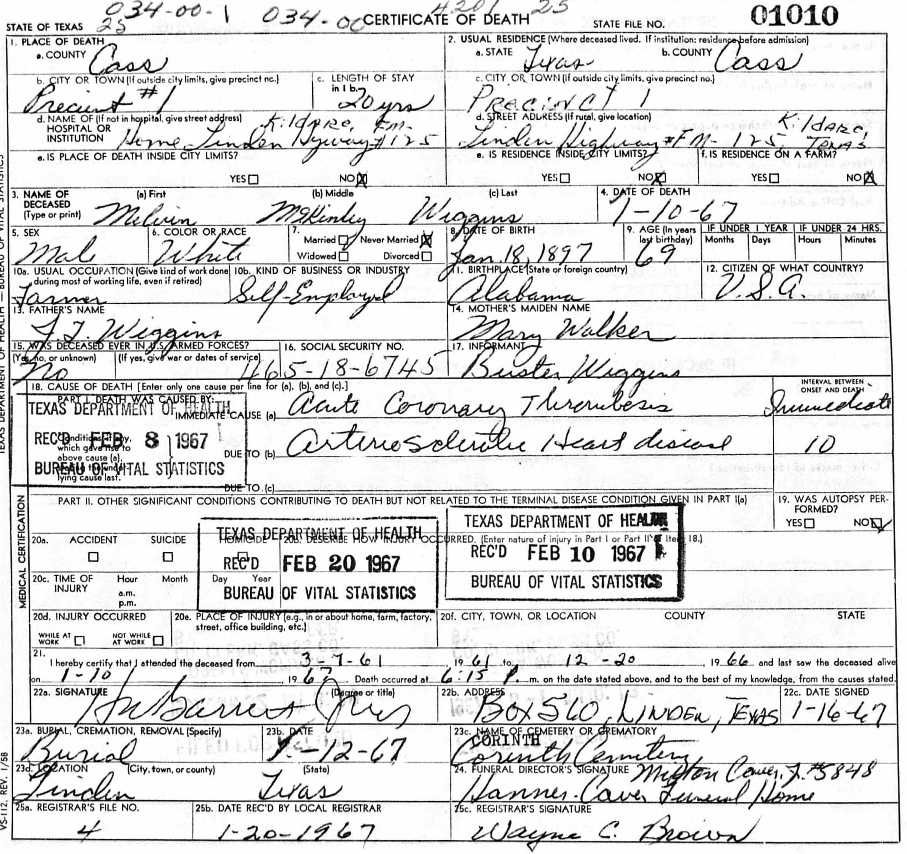 034-00-1 034-00 4201 25
STATE OF TEXAS 25 CERTIFICATE OF DEATH STATE FILE NO. 01010
1. PLACE OF DEATH 2. USUAL RESIDENCE (Where deceased lived. If institution: residence before admission)
a. COUNTY Cass a. STATE Texas b. COUNTY Cass
b. CITY OR TOWN (If outside city limits, give precinct no.) c. LENGTH OF STAY in 1 b. c. CITY OR TOWN (If outside city limits, give precinct no.)
Precinct #1 20 yrs PRECINCT 1
d. NAME OF (If not in hospital, give street address) HOSPITAL OR INSTITUTION d. STREET ADDRESS (If rural, give location)
Kildare, FM- K.Idare,
Home Linden Hyway #125 Linden Highway #FM-125 TEXAS
e. IS PLACE OF DEATH INSIDE CITY LIMITS? e. IS RESIDENCE INSIDE CITY LIMITS? f. IS RESIDENCE ON A FARM?
YES NO X YES NO X YES NO X
3. NAME OF DECEASED (Type or print) (a) First (b) Middle (c) Last 4. DATE OF DEATH
Melvin McKinley Wiggins 1-10-67
5. SEX 6. COLOR OR RACE 7. Married Never Married X Widowed Divorced 8. DATE OF BIRTH 9. AGE (In years last birthday) IF UNDER 1 YEAR Months Days IF UNDER 24 HRS. Hours Minutes
Male White Jan. 18, 1897 69
10a. USUAL OCCUPATION (Give kind of work done during most of working life, even if retired) 10b. KIND OF BUSINESS OR INDUSTRY 11. BIRTHPLACE (State or foreign country) 12. CITIZEN OF WHAT COUNTRY?
Farmer Self-Employed Alabama U.S.A.
13. FATHER'S NAME 14. MOTHER'S MAIDEN NAME
Wiggins Mary Walker
15. WAS DECEASED EVER IN U.S. ARMED FORCES? (Yes, no, or unknown) (If yes, give war or dates of service) 16. SOCIAL SECURITY NO. 17. INFORMANT
No 465-18-6745 Buster Wiggins
18. CAUSE OF DEATH [Enter only one cause per line for (a), (b), and (c).] INTERVAL BETWEEN ONSET AND DEATH
PART I. DEATH WAS CAUSED BY:
IMMEDIATE CAUSE (a) Acute Coronary Thrombosis Immediate
Conditions, if any, which gave rise to above cause (a), lying cause last.
DUE TO (b) Arteriosclerotic Heart disease 10
DUE TO (c)
TEXAS DEPARTMENT OF HEALTH
REC'D FEB 8 1967
BUREAU OF VITAL STATISTICS
PART II. OTHER SIGNIFICANT CONDITIONS CONTRIBUTING TO DEATH BUT NOT RELATED TO THE TERMINAL DISEASE CONDITION GIVEN IN PART I(a) 19. WAS AUTOPSY PERFORMED?
YES NO
20a. ACCIDENT SUICIDE HOMICIDE 20b. DESCRIBE HOW INJURY OCCURRED. (Enter nature of injury in Part I or Part II of Item 18.)
TEXAS DEPARTMENT OF HEALTH
REC'D FEB 20 1967
BUREAU OF VITAL STATISTICS
TEXAS DEPARTMENT OF HEALTH
REC'D FEB 10 1967
BUREAU OF VITAL STATISTICS
20c. TIME OF INJURY Hour a.m. p.m. Month Day Year
20d. INJURY OCCURRED WHILE AT WORK NOT WHILE AT WORK 20e. PLACE OF INJURY (e.g., in or about home, farm, factory, street, office building, etc.) 20f. CITY, TOWN, OR LOCATION COUNTY STATE
21. I hereby certify that I attended the deceased from 3-7-61 1961 to 12-20 1966 and last saw the deceased alive
on 1-10 1967 Death occurred at 6:15 P. m. on the date stated above, and to the best of my knowledge, from the causes stated.
22a. SIGNATURE (Degree or title) 22b. ADDRESS 22c. DATE SIGNED
BOX 560, LINDEN, TEXAS 1-16-67
23a. BURIAL, CREMATION, REMOVAL (Specify) 23b. DATE 23c. NAME OF CEMETERY OR CREMATORY
Burial 1-12-67 CORINTH Corinth Cemetery
23d. LOCATION (City, town, or county) (State) 24. FUNERAL DIRECTOR'S SIGNATURE
Linden Texas Milton Caver #5848
Hanner-Caver Funeral Home
25a. REGISTRAR'S FILE NO. 25b. DATE REC'D BY LOCAL REGISTRAR 25c. REGISTRAR'S SIGNATURE
4 1-20-1967 Wayne C. Brown
MEDICAL CERTIFICATION
TEXAS DEPARTMENT OF HEALTH — BUREAU OF VITAL STATISTICS
VS-112, REV. 1/58